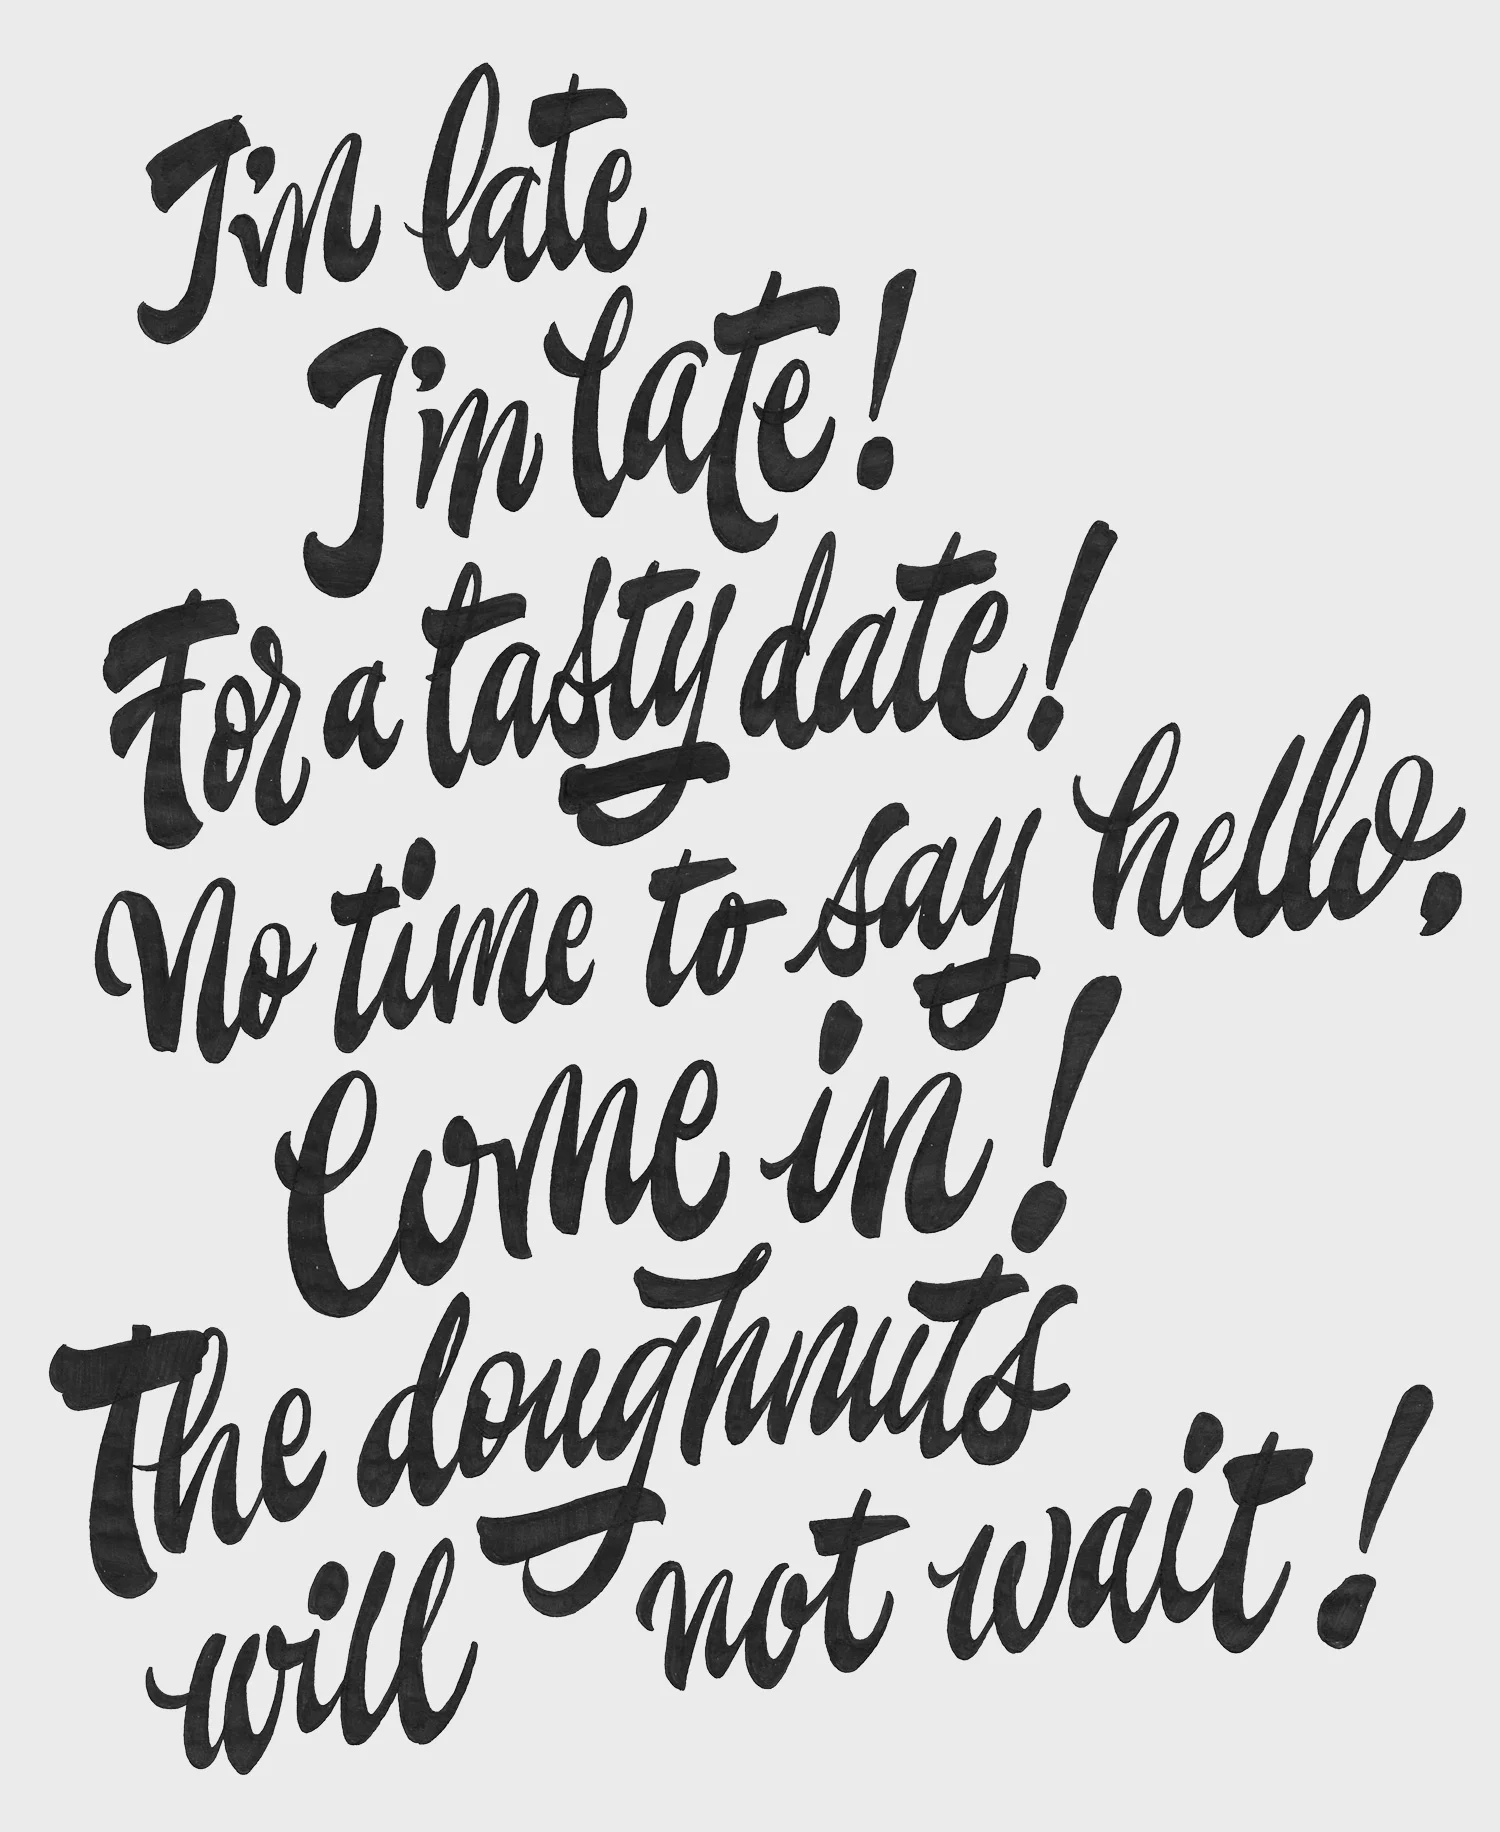 I'm late
I'm late!
For a tasty date!
No time to say hello,
Come in!
The doughnuts
will not wait!